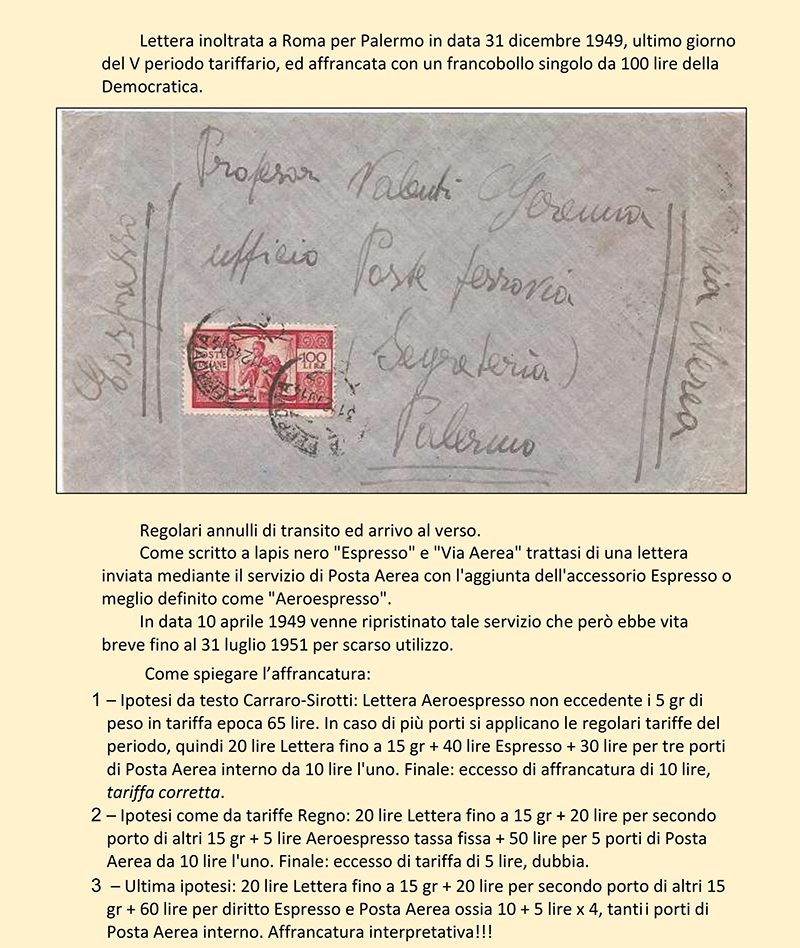 Lettera inoltrata a Roma per Palermo in data 31 dicembre 1949, ultimo giorno
del V periodo tariffario, ed affrancata con un francobollo singolo da 100 lire della
Democratica.
Profesor Valenti
ufficio Poste ferrovia
(Segreteria)
Palermo
Espresso
via Aerea
POSTE
ITALIANE
100
LIRE
Regolari annulli di transito ed arrivo al verso.
Come scritto a lapis nero "Espresso" e "Via Aerea" trattasi di una lettera
inviata mediante il servizio di Posta Aerea con l'aggiunta dell'accessorio Espresso o
meglio definito come "Aeroespresso".
In data 10 aprile 1949 venne ripristinato tale servizio che però ebbe vita
breve fino al 31 luglio 1951 per scarso utilizzo.
Come spiegare l’affrancatura:
1 – Ipotesi da testo Carraro-Sirotti: Lettera Aeroespresso non eccedente i 5 gr di
peso in tariffa epoca 65 lire. In caso di più porti si applicano le regolari tariffe del
periodo, quindi 20 lire Lettera fino a 15 gr + 40 lire Espresso + 30 lire per tre porti
di Posta Aerea interno da 10 lire l'uno. Finale: eccesso di affrancatura di 10 lire,
tariffa corretta.
2 – Ipotesi come da tariffe Regno: 20 lire Lettera fino a 15 gr + 20 lire per secondo
porto di altri 15 gr + 5 lire Aeroespresso tassa fissa + 50 lire per 5 porti di Posta
Aerea da 10 lire l'uno. Finale: eccesso di tariffa di 5 lire, dubbia.
3 – Ultima ipotesi: 20 lire Lettera fino a 15 gr + 20 lire per secondo porto di altri 15
gr + 60 lire per diritto Espresso e Posta Aerea ossia 10 + 5 lire x 4, tantii porti di
Posta Aerea interno. Affrancatura interpretativa!!!